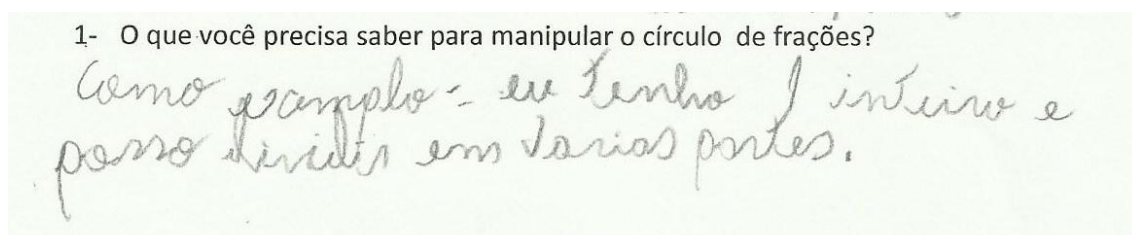 1- O que você precisa saber para manipular o círculo de frações?
Como exemplo - eu tenho 1 inteiro e
posso dividir em varias partes.